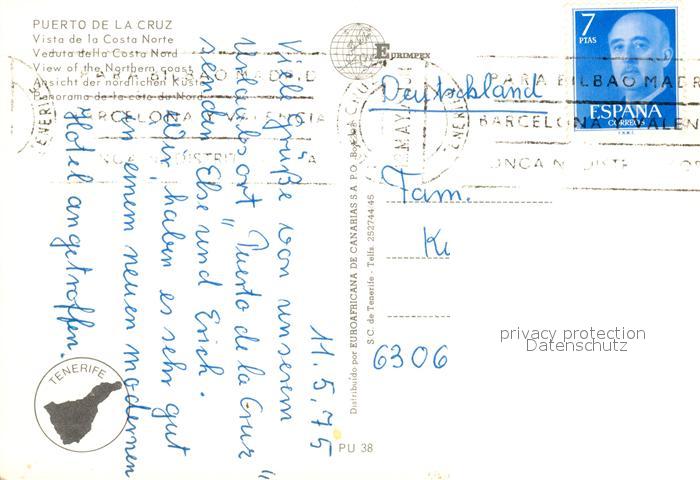 PUERTO DE LA CRUZ
Vista de la Costa Norte
Veduta della Costa Nord
View of the Northern coast
Ansicht der nördlichen Küste
Panorama de la côte du Nord
EURIMPEX
7
PTAS
ESPAÑA
CORREOS
PARA BILBAO MADRID
BARCELONA VALENCIA
MAY
Deutschland
Fam.
6306
privacy protection
Datenschutz
11.5.75
Viele Grüße von unserem
Urlaubsort "Puerto de la Cruz"
senden Else und Erich.
Wir haben es sehr gut
in einem neuen modernen
Hotel angetroffen.
Distribuido por EUROAFRICANA DE CANARIAS S.A. P.O.
S.C. de Tenerife - Telfs. 252744-45
TENERIFE
PU 38